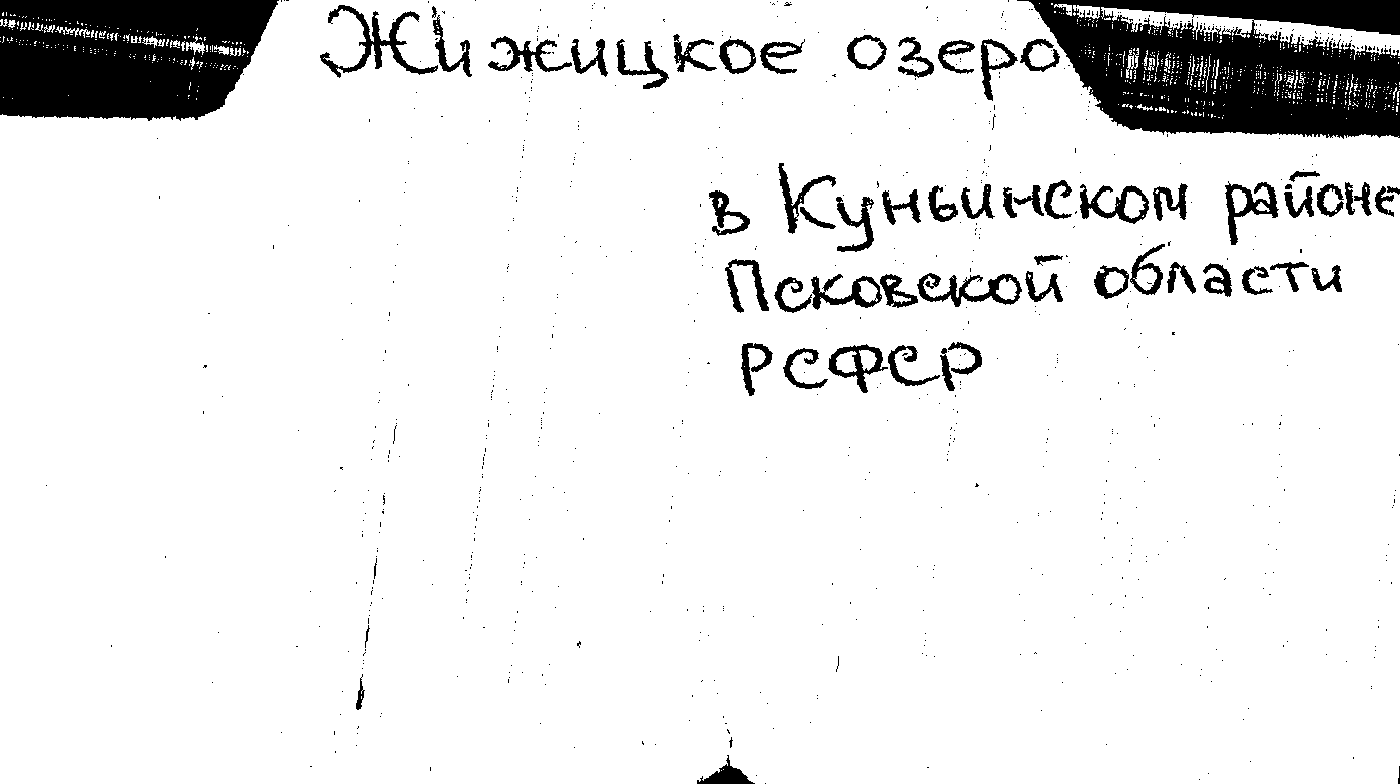 Жижицкое озеро
в Куньинском районе
Псковской области
РСФСР